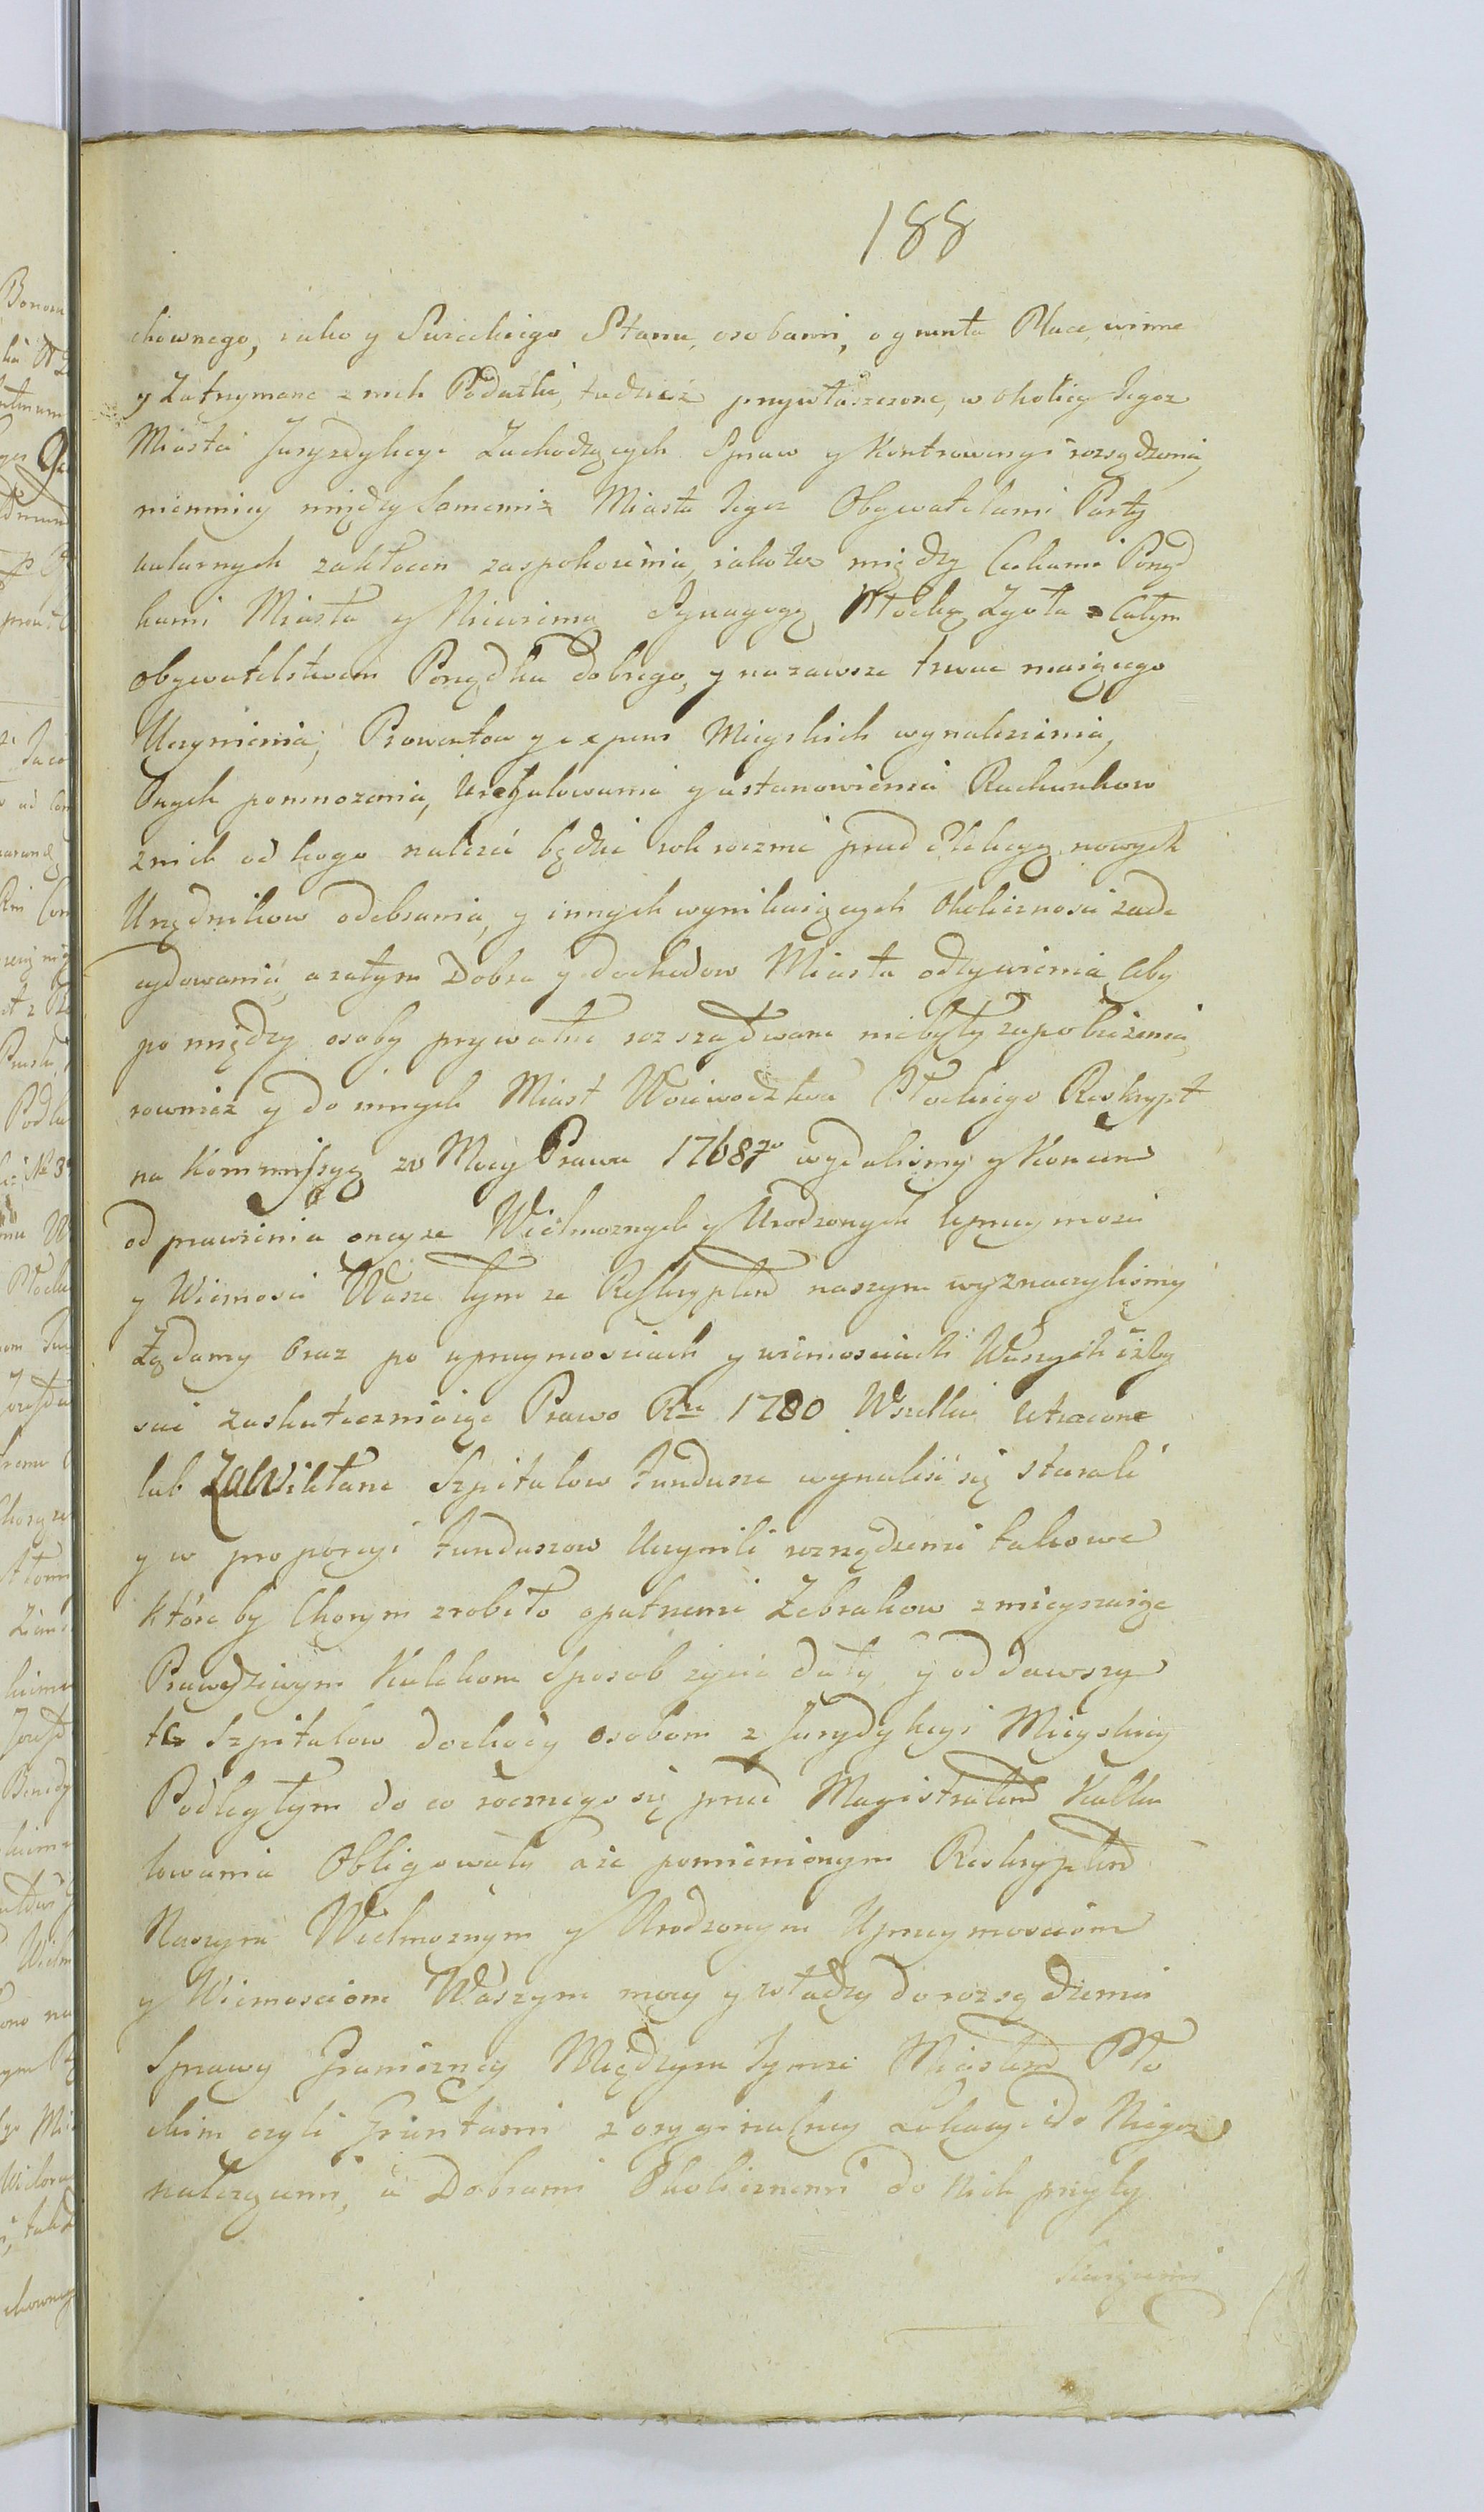 188
chownego, iako y Swieckiego Stanu, osobami, o grunta Place winne
y Zatrzymane z nich Podatki, tudzież przywłaszczone, w okolicy tegoz
Miasta Juryzdykcyi Zachodzących Spraw y Kontrowersyi rozsądzenia,
niemniey między Samemiz Miasta tegoz Obywatelami Party
kularnych zakłocen zaspokoienia, iakoteż między Cechami Porząd
kami Miasta y Niewierną Synagogą Płocką Zgoła z Całym
obywatelstwem Porządku dobrego, y na zawsze trwac maiącego
Uczynienia, Prowentow y expens Mieyskich wynalezienia,
Onych pomnozenia, Uregulowania y ustanowienia Rachunkow
z nich od kogo nalezeć będzie rok rocznie przed Elekcyą nowych
Urzędnikow odebrania, y innych wynikaiących okolicznosci zade
cydowania, a zatym Dobra y dochodow Miasta odzywienia Aby
pomiędzy osoby prywatne rozszafowane niebyły zapobieżenia,
rownież y do innych Miast Woiewodztwa Płockiego Reskrypt
na Kommissyą w Mocy Prawa 1768go wydalismy y Koncem
odprawienia oneyże Wielmoznych y Urodzonych Uprzeymosci
y Wiernosci Wasze tymze Reskryptem naszym wyznaczylismy
Żądamy Oraz po uprzymosciach y wiernosciach Waszych iżby
scie zaskuteczniaiąc Prawo Ru 1780 Wszelkie Utracone
lub Zawikłane Szpitalow fundusze wynaliść się starali
y w proporcyi funduszow Uczynili rozrządzenie takowe
które by Chorym zrobiło opatrzenie Zebrakow zmieyszaiąc
Prawdziwym Kalekom Sposob zycia dały, y oddawszy
te Szpitalow dochody osobom z Jurydykcyi Mieyskiey
Podległym do co rocznego się przed Magistratem Kalku
lowania Obligowały a że pomienionym Reskryptem
Naszym Wielmoznym y Urodzonym Uprzeymosciom
y Wiernosciom Waszym mocy y władzy do rozsądzenia
Sprawy Graniczney Między tymze Miastem Pło
ckim czyli Gruntami z oryginalney Lokacyi do Niegoz
należącemi, a Dobrami Okolicznemi do nich przyty
kaiącemi